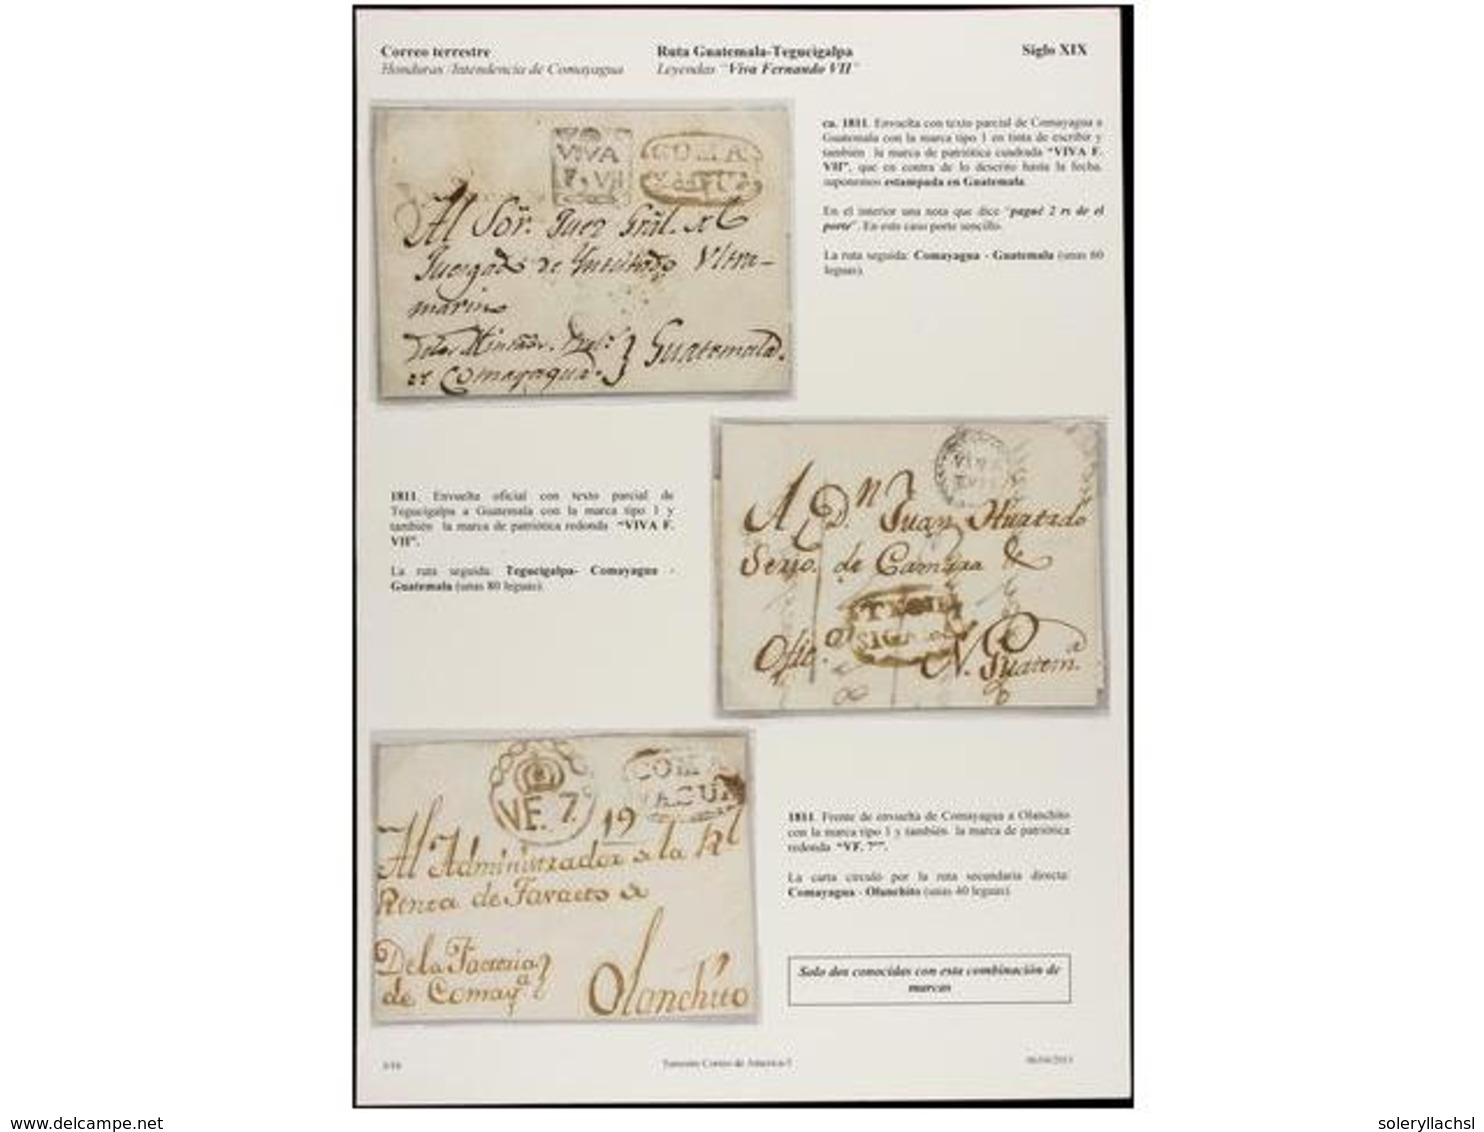 Correo terrestre
Honduras /Intendencia de Comayagua
Ruta Guatemala-Tegucigalpa
Leyendas "Viva Fernando VII"
Siglo XIX
VIVA
F. VII
COMA
YAGUA
Al Sor. Juez Gral. de
Juzgado de Ultra-
marino
de Comayagua.
Guatemala.
ca. 1811. Envuelta con texto parcial de Comayagua a
Guatemala con la marca tipo 1 en tinta de escribir y
también la marca de patriótica cuadrada "VIVA F.
VII", que en contra de lo descrito hasta la fecha,
suponemos estampada en Guatemala.
En el interior una nota que dice "pagué 2 rs de el
porte". En este caso porte sencillo.
La ruta seguida: Comayagua - Guatemala (unas 60
leguas).
1811. Envuelta oficial con texto parcial de
Tegucigalpa a Guatemala con la marca tipo 1 y
también la marca de patriótica redonda "VIVA F.
VII".
La ruta seguida: Tegucigalpa- Comayagua -
Guatemala (unas 80 leguas).
VIVA
F.VII
A Dn Juan Hurtado
Serio. de Camara &
TEGU
SIGAL
Ofic.
N. Guatem.a
COMA
YAGUA
VF. 7.
19
Al Administrador de la Rl
Renta de Tavacos de
De la Factoria
de Comaya
Olanchito
1811. Frente de envuelta de Comayagua a Olanchito
con la marca tipo 1 y también la marca de patriótica
redonda "VF. 7º".
La carta circuló por la ruta secundaria directa:
Comayagua - Olanchito (unas 40 leguas).
Solo dos conocidas con esta combinación de
marcas
Terrestre Correo de America-5
delcampe.net
soleryllachsl